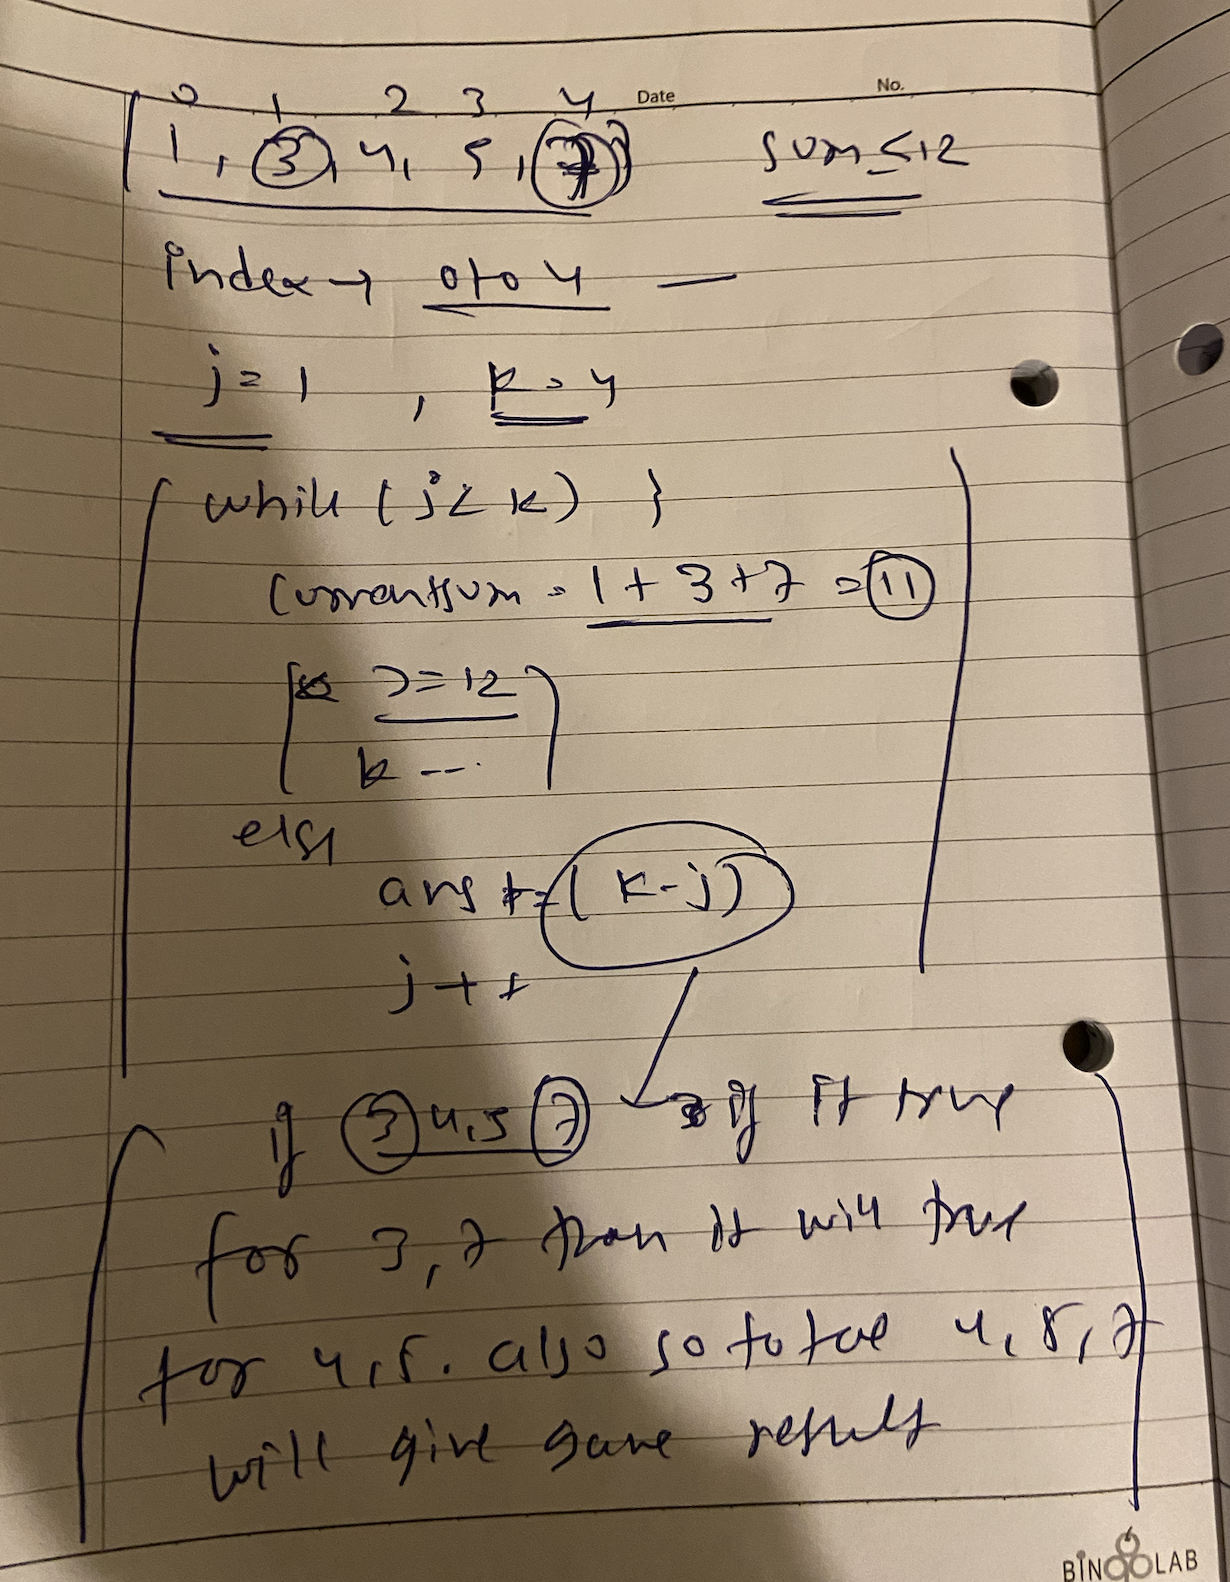 0 1 2 3 4 Date No.
1, 3, 4, 5, 7 sum ≤ 12
index → 0 to 4 —
j = 1 , k = 4
while (j < k) }
currentsum = 1 + 3 + 7 = 11
>= 12
k --
else
ans += (k - j)
j++
if 3 4, 5 7 if it true
for 3, 7 than it will true
for 4, 5. also so total 4, 5, 7
will give same result
BINGOLAB